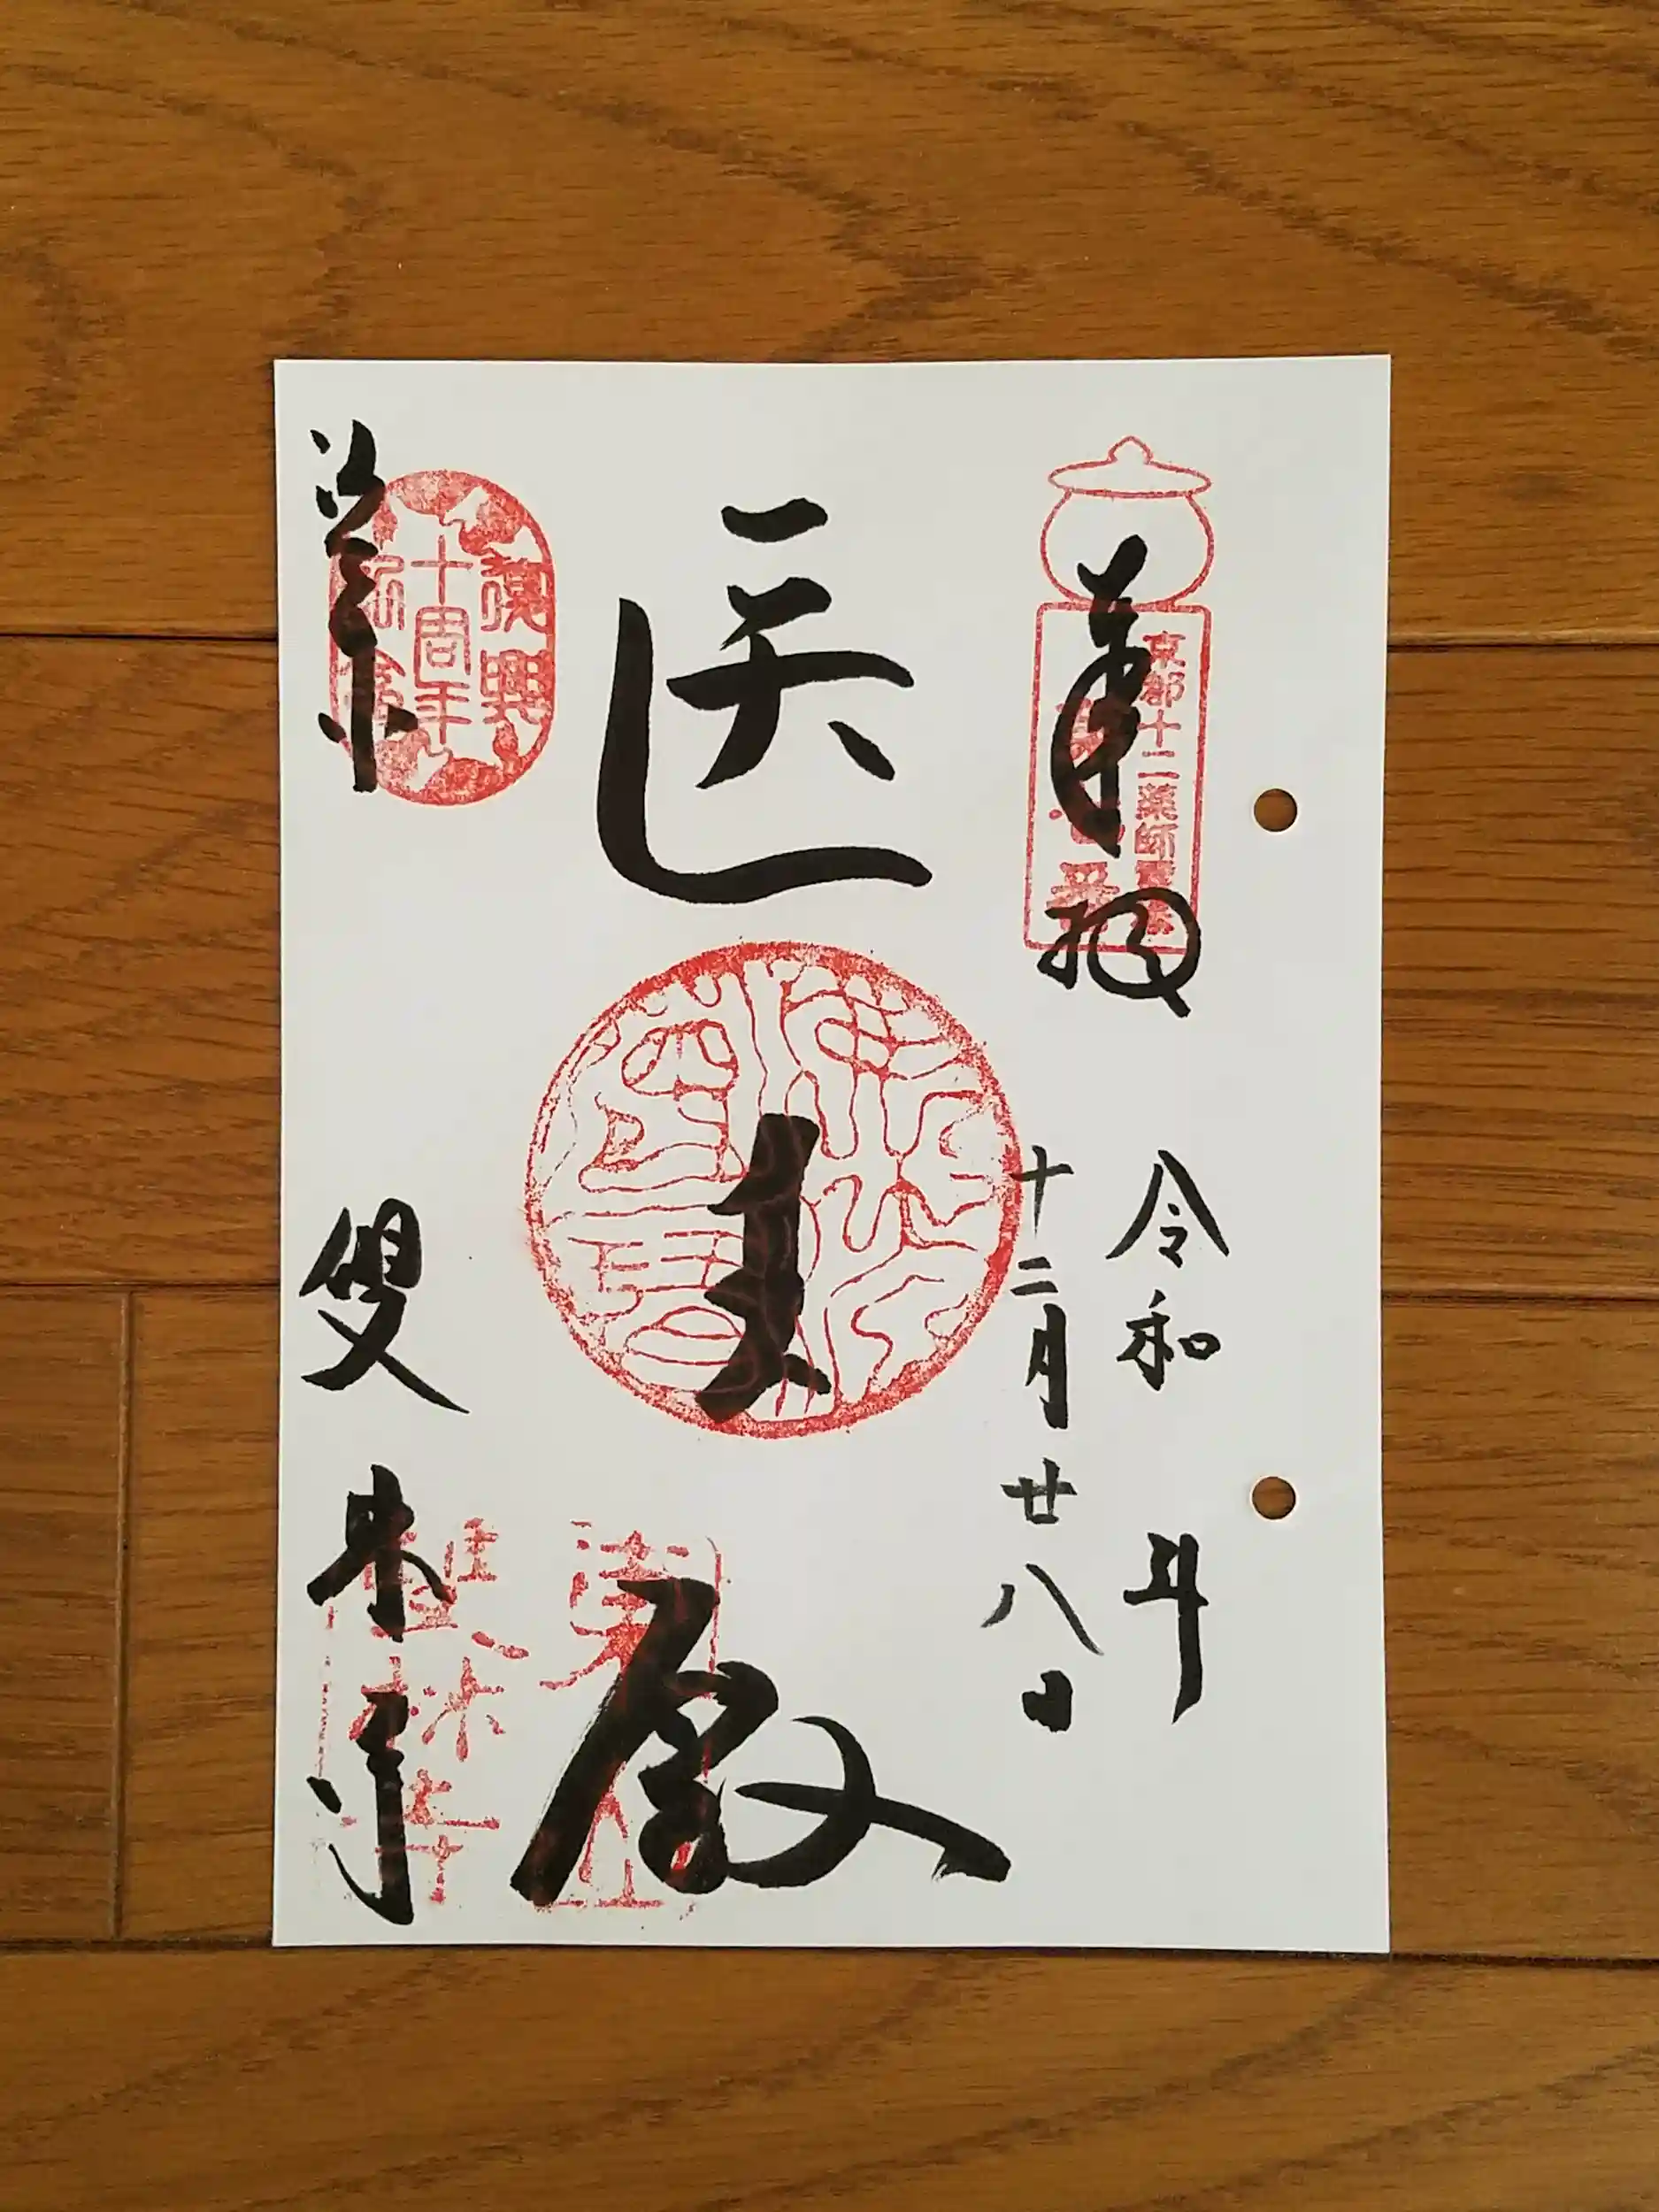 奉拝
京都十二薬師霊場
令和 年
十二月廿八日
医王殿
復興
十周年
洛東
雙林寺
東山
雙林寺